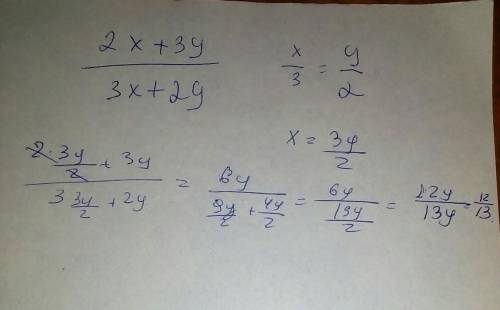 (2x+3y)/(3x+2y)    x/3 = y/2
x = 3y/2
(2·3y/2 + 3y)/(3 3y/2 + 2y) = 6y/(9y/2 + 4y/2) = 6y/(13y/2) = 12y/13y = 12/13